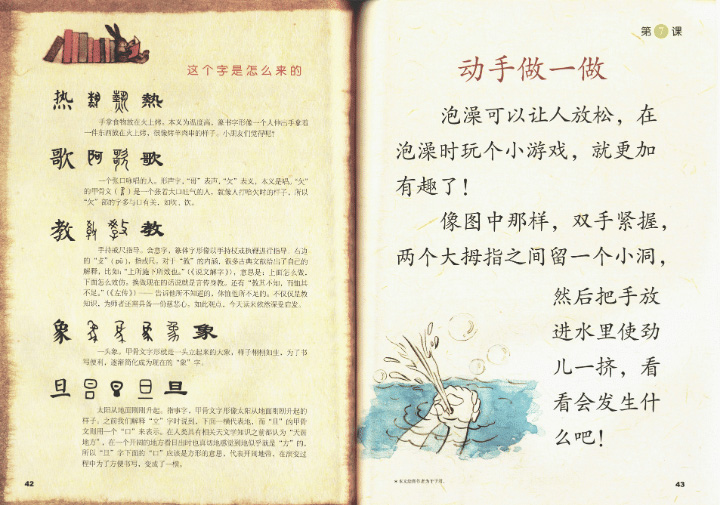 这个字是怎么来的
热 熱
手拿食物放在火上烤，本义为温度高，篆书字形像一个人伸出手拿着
一件东西放在火上烤，很像烤羊肉串的样子。小朋友们觉得呢？
歌 歌
一个张口咏唱的人。形声字，“可”表声，“欠”表义，本义是唱。“欠”
的甲骨文（）是一个张着大口出气的人，就像人打哈欠时的样子，所以
“欠”部的字多与口有关，如吹、饮。
教 教
手持戒尺指导。会意字，篆体字形像以手持杖或执鞭进行指导。右边
的“攴”（pū），指戒尺，对于“教”的内涵，很多古典文献给出了自己的
解释，比如：“上所施下所效也。”（《说文解字》），意思是：上面怎么做，
下面怎么效仿，换做现在的话说就是言传身教。还有“教其不知，而恤其
不足。”（《左传》）——告诉他所不知道的，体恤他所不足的。不仅仅是教
知识，为师者还需具备一份慈悲心。如此观点，今天读来依然深受启发。
象 象
一头象。甲骨文字形就是一头立起来的大象，样子栩栩如生，为了书
写便利，逐渐简化成为现在的“象”字。
旦 旦
太阳从地面刚刚升起。指事字，甲骨文字形像太阳从地面刚刚升起的
样子；之前我们解释“立”字时提到，下面一横代表地，而“旦”的甲骨
文则用一个“口”来表示。在人类具有相关天文学知识之前都认为“天圆
地方”，在一个开阔的地方看日出时也真切地感觉到地似乎就是“方”的，
所以“旦”字下面的“口”应该是方形的意思，代表开阔地带。在演变过
程中为了方便书写，变成了一横。
42
第7课
动手做一做
泡澡可以让人放松，在
泡澡时玩个小游戏，就更加
有趣了！
像图中那样，双手紧握，
两个大拇指之间留一个小洞，
然后把手放
进水里使劲
儿一挤，看
看会发生什
么吧！
43